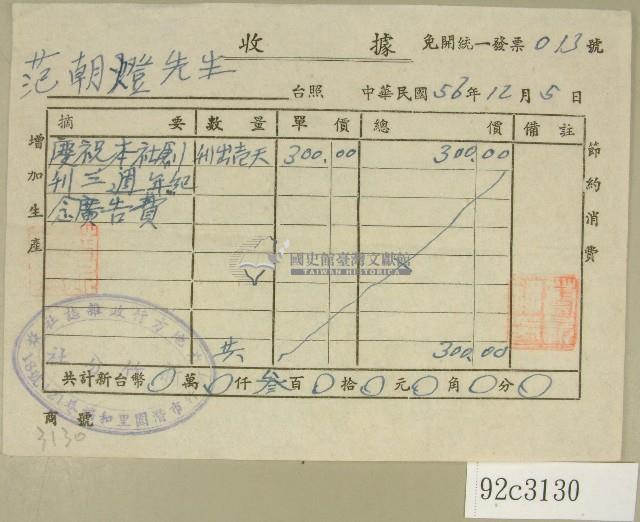 收據 免開統一發票013號
范朝燈先生 台照 中華民國56年12月5日
摘要 數量 單價 總價 備註
慶祝本社創 刊出壱天 300.00 300.00
刊三週年紀
念廣告費
共 300.00
共計新台幣0萬0仟叁百0拾0元0角0分0
增加生產
節約消費
國史館臺灣文獻館
TAIWAN HISTORICA
地方行政雜誌社
商號
3130
92c3130